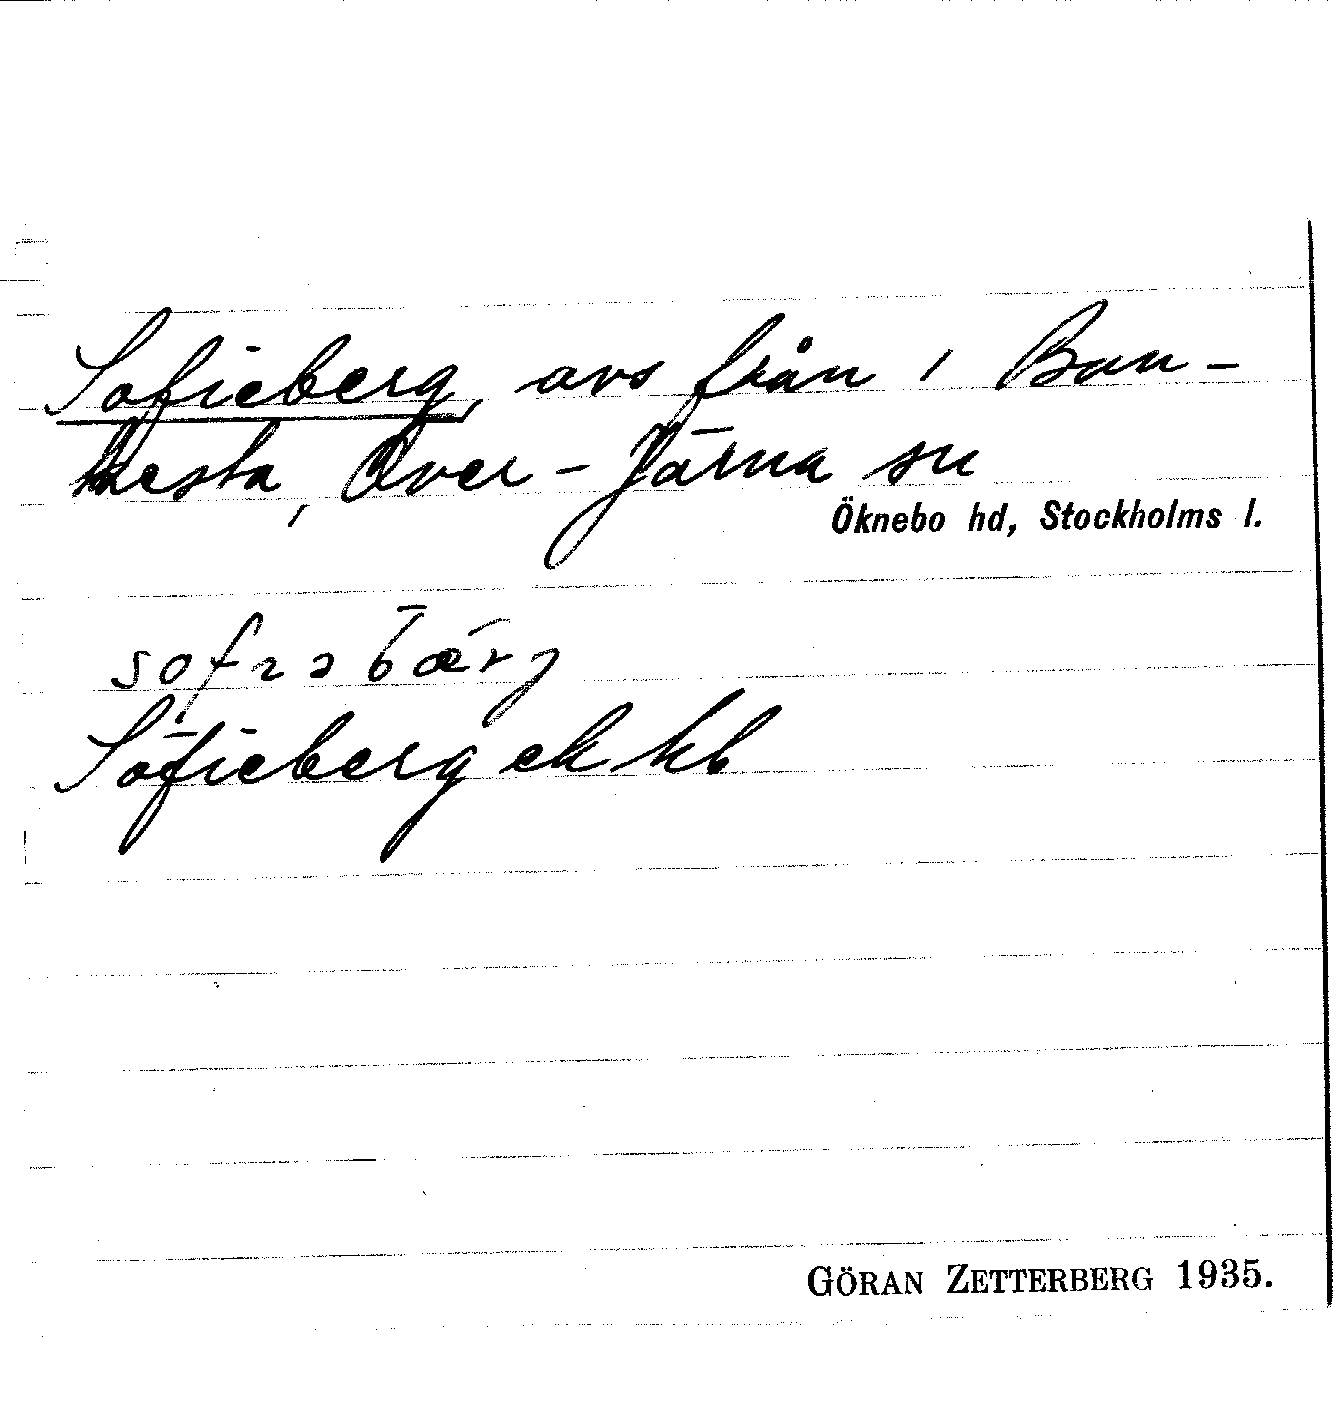 Sofieberg, avs från 1 Bon-
hesta, Över-Järna sn
Öknebo hd, Stockholms l.
Sofieberg ek kb
GÖRAN ZETTERBERG 1935.